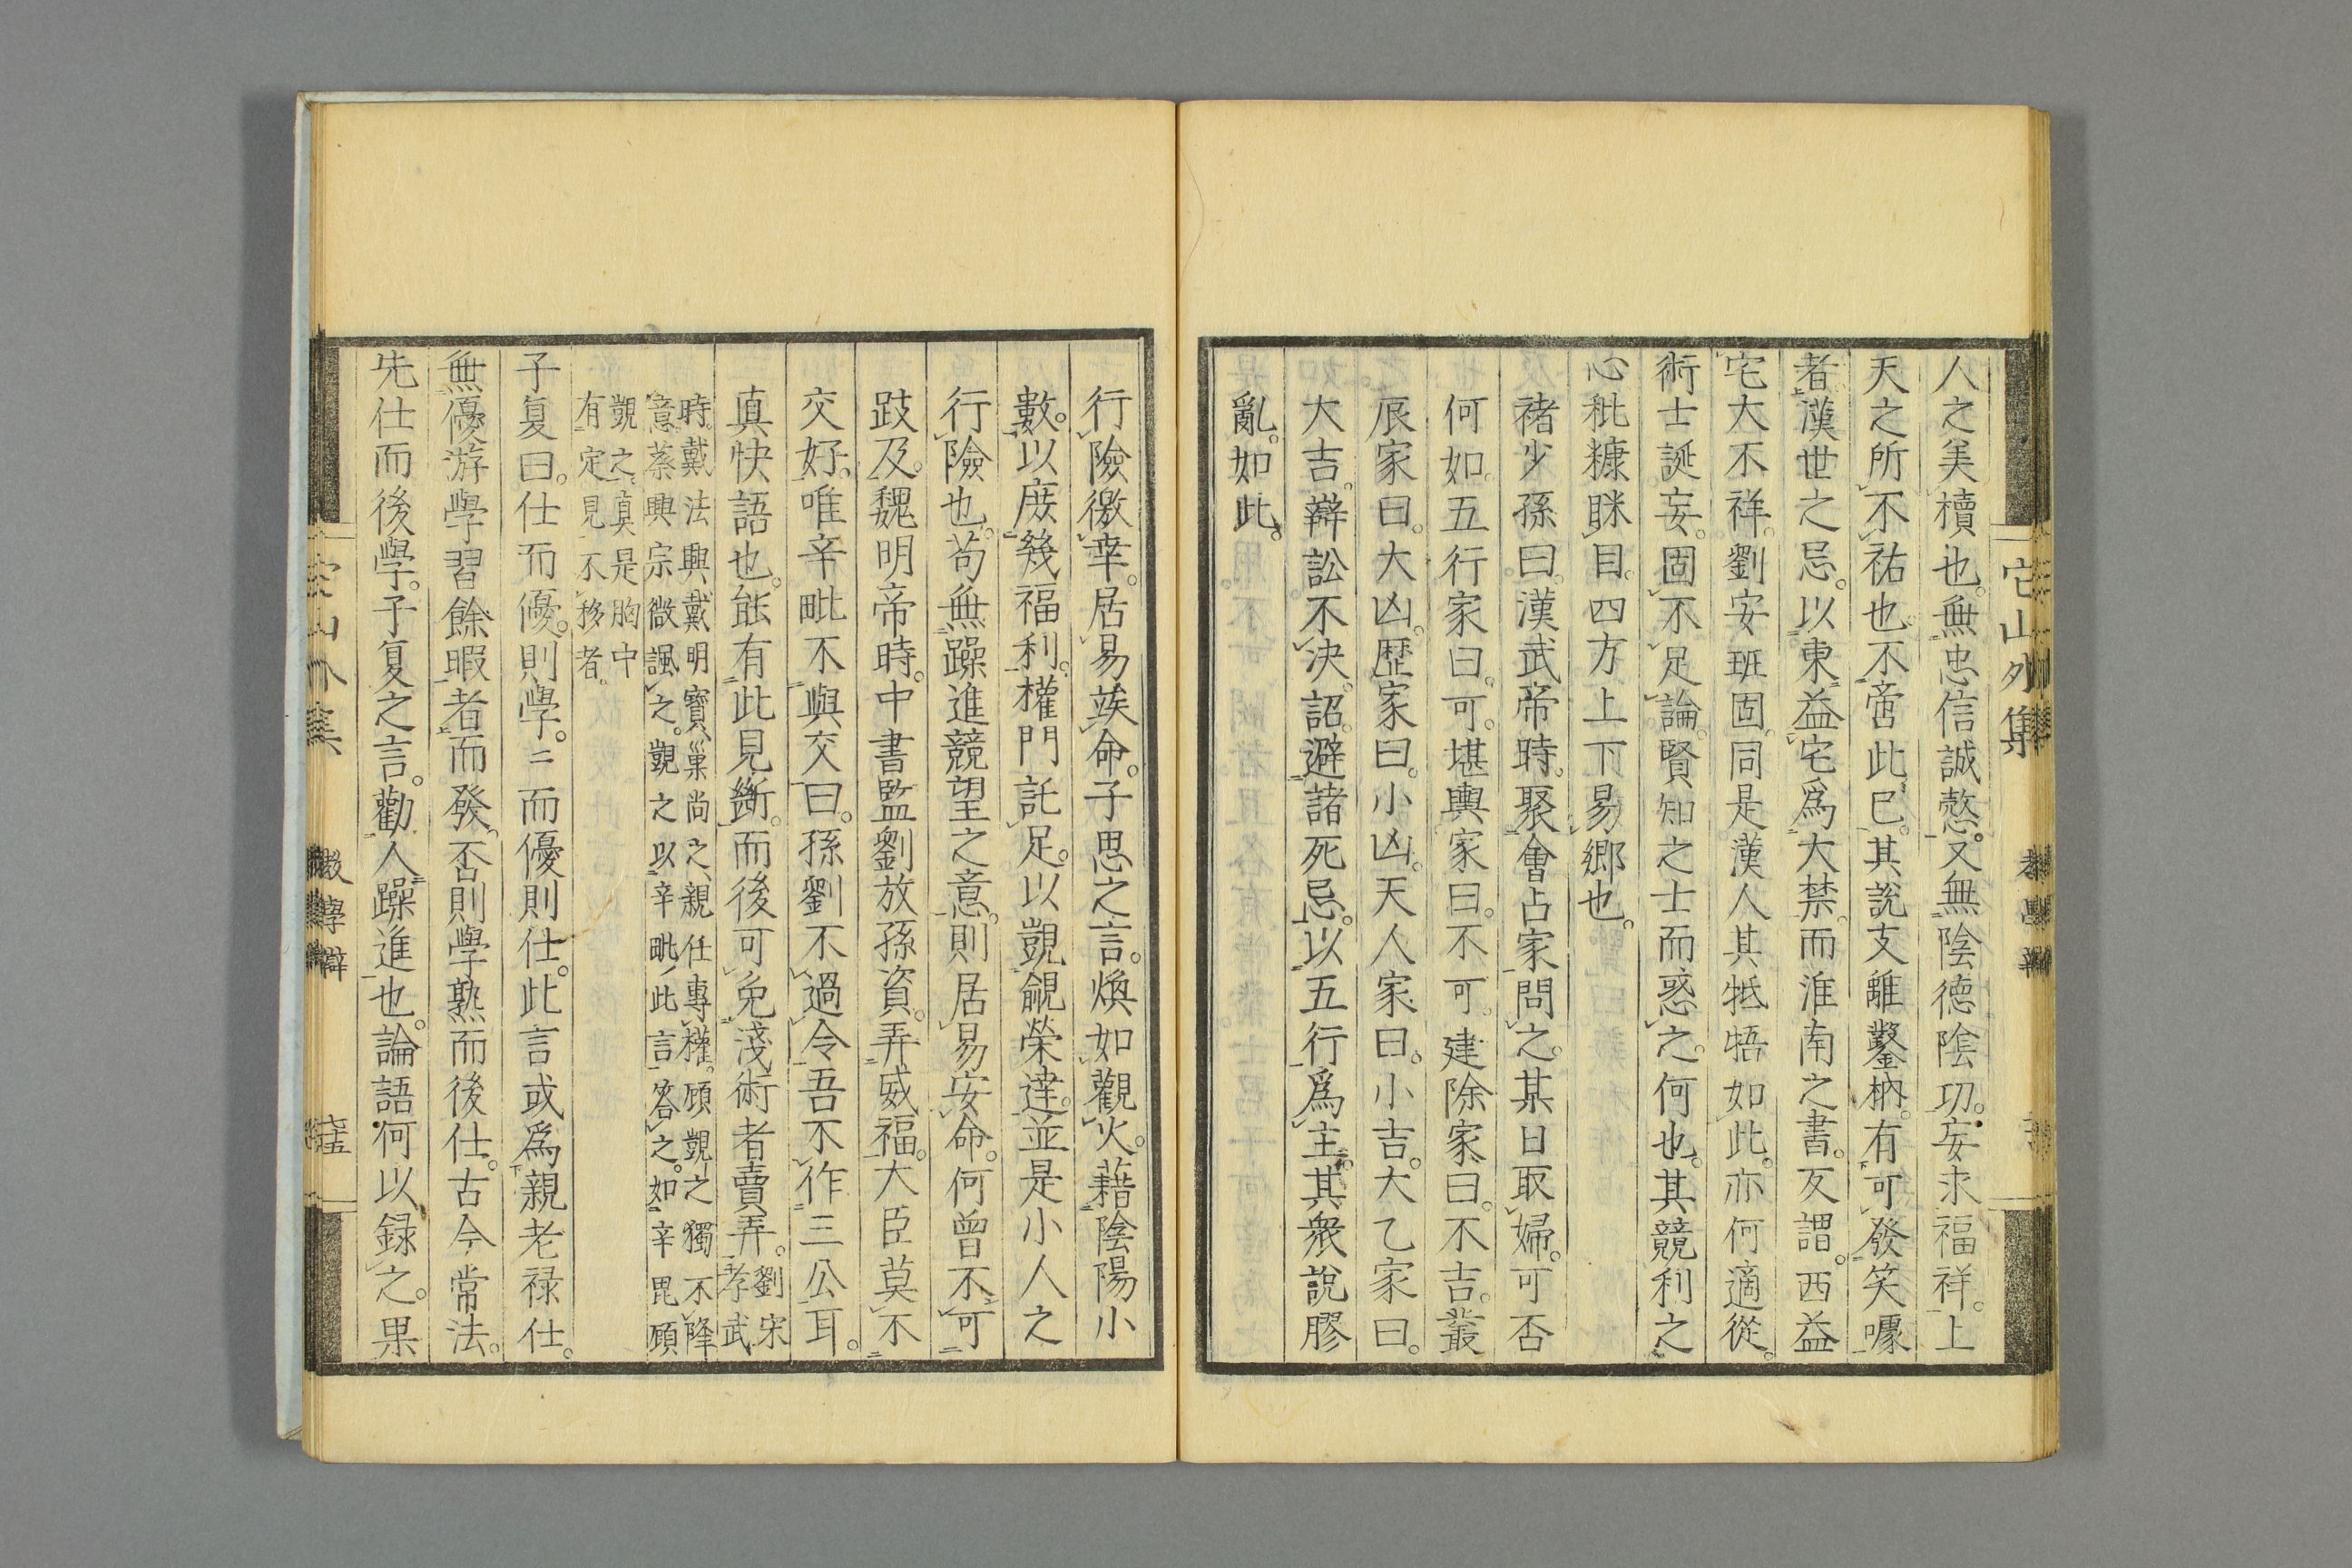 人之美櫝也。無忠信誠愨。又無陰德陰功。妄求福祥。上
天之所不祐也。不啻此已。其說支離鑿枘。有可發笑噱
者。漢世之忌。以東益宅爲大禁。而淮南之書。反謂。西益
宅大不祥。劉安班固。同是漢人其牴牾如此。亦何適從。
術士誕妄。固不足論。賢知之士而惑之。何也。其競利之
心秕糠眯目。四方上下易鄉也。
褚少孫曰。漢武帝時。聚會占家問之。某日取婦。可否
何如。五行家曰。可。堪輿家曰。不可。建除家曰。不吉。叢
辰家曰。大凶。歷家曰。小凶。天人家曰。小吉。大乙家曰。
大吉。辯訟不決。詔。避諸死忌。以五行爲主。其衆說膠
亂。如此。
它山外集
行險徼幸。居易俟命。子思之言。煥如觀火。藉陰陽小
數。以庶幾福利。權門託足。以覬覦榮達。並是小人之
行險也。苟無躁進競望之意。則居易安命。何曾不可
跂及。魏明帝時。中書監劉放孫資。弄威福。大臣莫不
交好。唯辛毗不與交曰。孫劉不過令吾不作三公耳。
眞快語也。能有此見斷。而後可免淺術者賣弄。劉宋
孝武
時。戴法興戴明寶巢尚之。親任專權。顧覬之獨不降
意蔡興宗微諷之。覬之以辛毗此言答之。如辛毘顧
覬之。眞是胸中
有定見不移者。
子夏曰。仕而優。則學。二而優則仕。此言或爲親老祿仕。
無優游學習餘暇者而發。否則學熟而後仕。古今常法。
先仕而後學。子夏之言。勸人躁進也。論語何以録之。果
它山外集